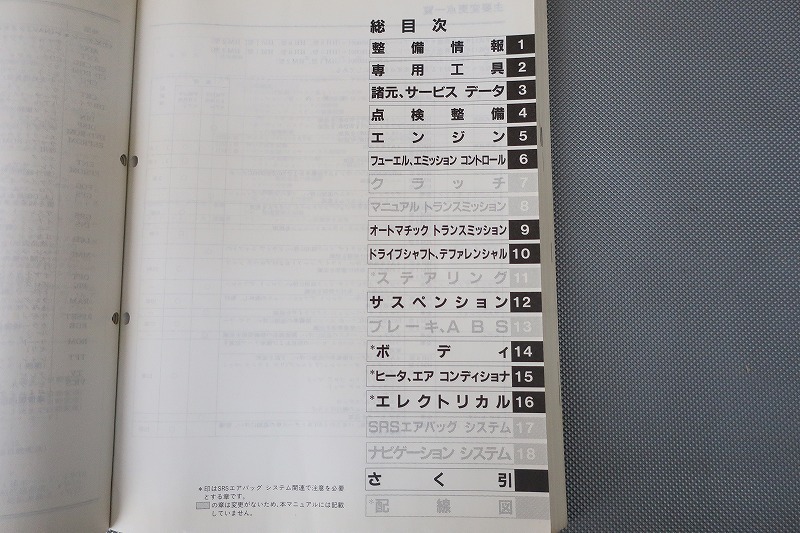 総目次
整備情報 1
専用工具 2
諸元、サービス データ 3
点検整備 4
エンジン 5
フューエル、エミッション コントロール 6
クラッチ 7
マニュアル トランスミッション 8
オートマチック トランスミッション 9
ドライブシャフト、デファレンシャル 10
*ステアリング 11
サスペンション 12
ブレーキ、ABS 13
*ボディ 14
*ヒータ、エア コンディショナ 15
*エレクトリカル 16
SRSエアバッグ システム 17
ナビゲーション システム 18
さく引
*配線図
*印はSRSエアバッグ システム関連で注意を必要
とする章です。
の章は変更がないため、本マニュアルには記載
していません。